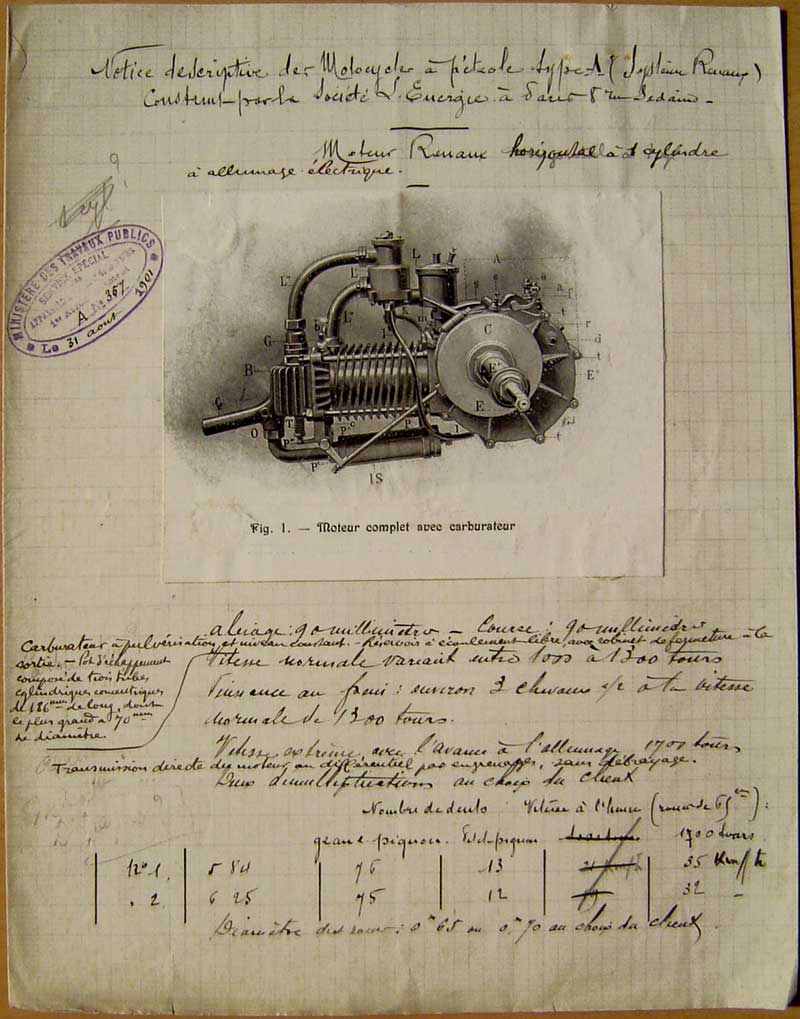 Notice descriptive des Motocycles à pétrole type A (Système Renaux)
Construit par la Société L'Énergie à Paris 8 rue Sedaine -
Moteur Renaux horizontal à 1 cylindre
à allumage électrique.
MINISTÈRE DES TRAVAUX PUBLICS
SERVICE SPÉCIAL
A No 367
Le 31 août 1901
L''
L'
L
A
G
B
C
E'
E
O
T
P
d
r
t
E''
1S
Fig. 1. — Moteur complet avec carburateur
alésage : 90 millimètres - Course : 90 millimètres
Carburateur à pulvérisation et niveau constant. - Réservoir à écoulement libre, avec robinet de fermeture à la
sortie. - Pot d'échappement
composé de trois tubes
cylindriques concentriques
de 186mm de long, dont
le plus grand a 70mm
de diamètre.
Vitesse normale variant entre 1000 à 1300 tours
Puissance au frein : environ 3 chevaux 1/2 à la vitesse
normale de 1300 tours.
Vitesse extrême avec l'avance à l'allumage 1700 tours
Transmission directe du moteur au différentiel par engrenages, sans débrayage.
Deux démultiplications au choix du client
Nombre de dents Vitesse à l'heure (roues de 65cm) :
grand pignon. Petit pignon 1700 tours
No 1. 5 84 76 13 35 Km/h
. 2. 6 25 75 12 32 -
Diamètre des roues : 0m 65 ou 0,70 au choix du client.